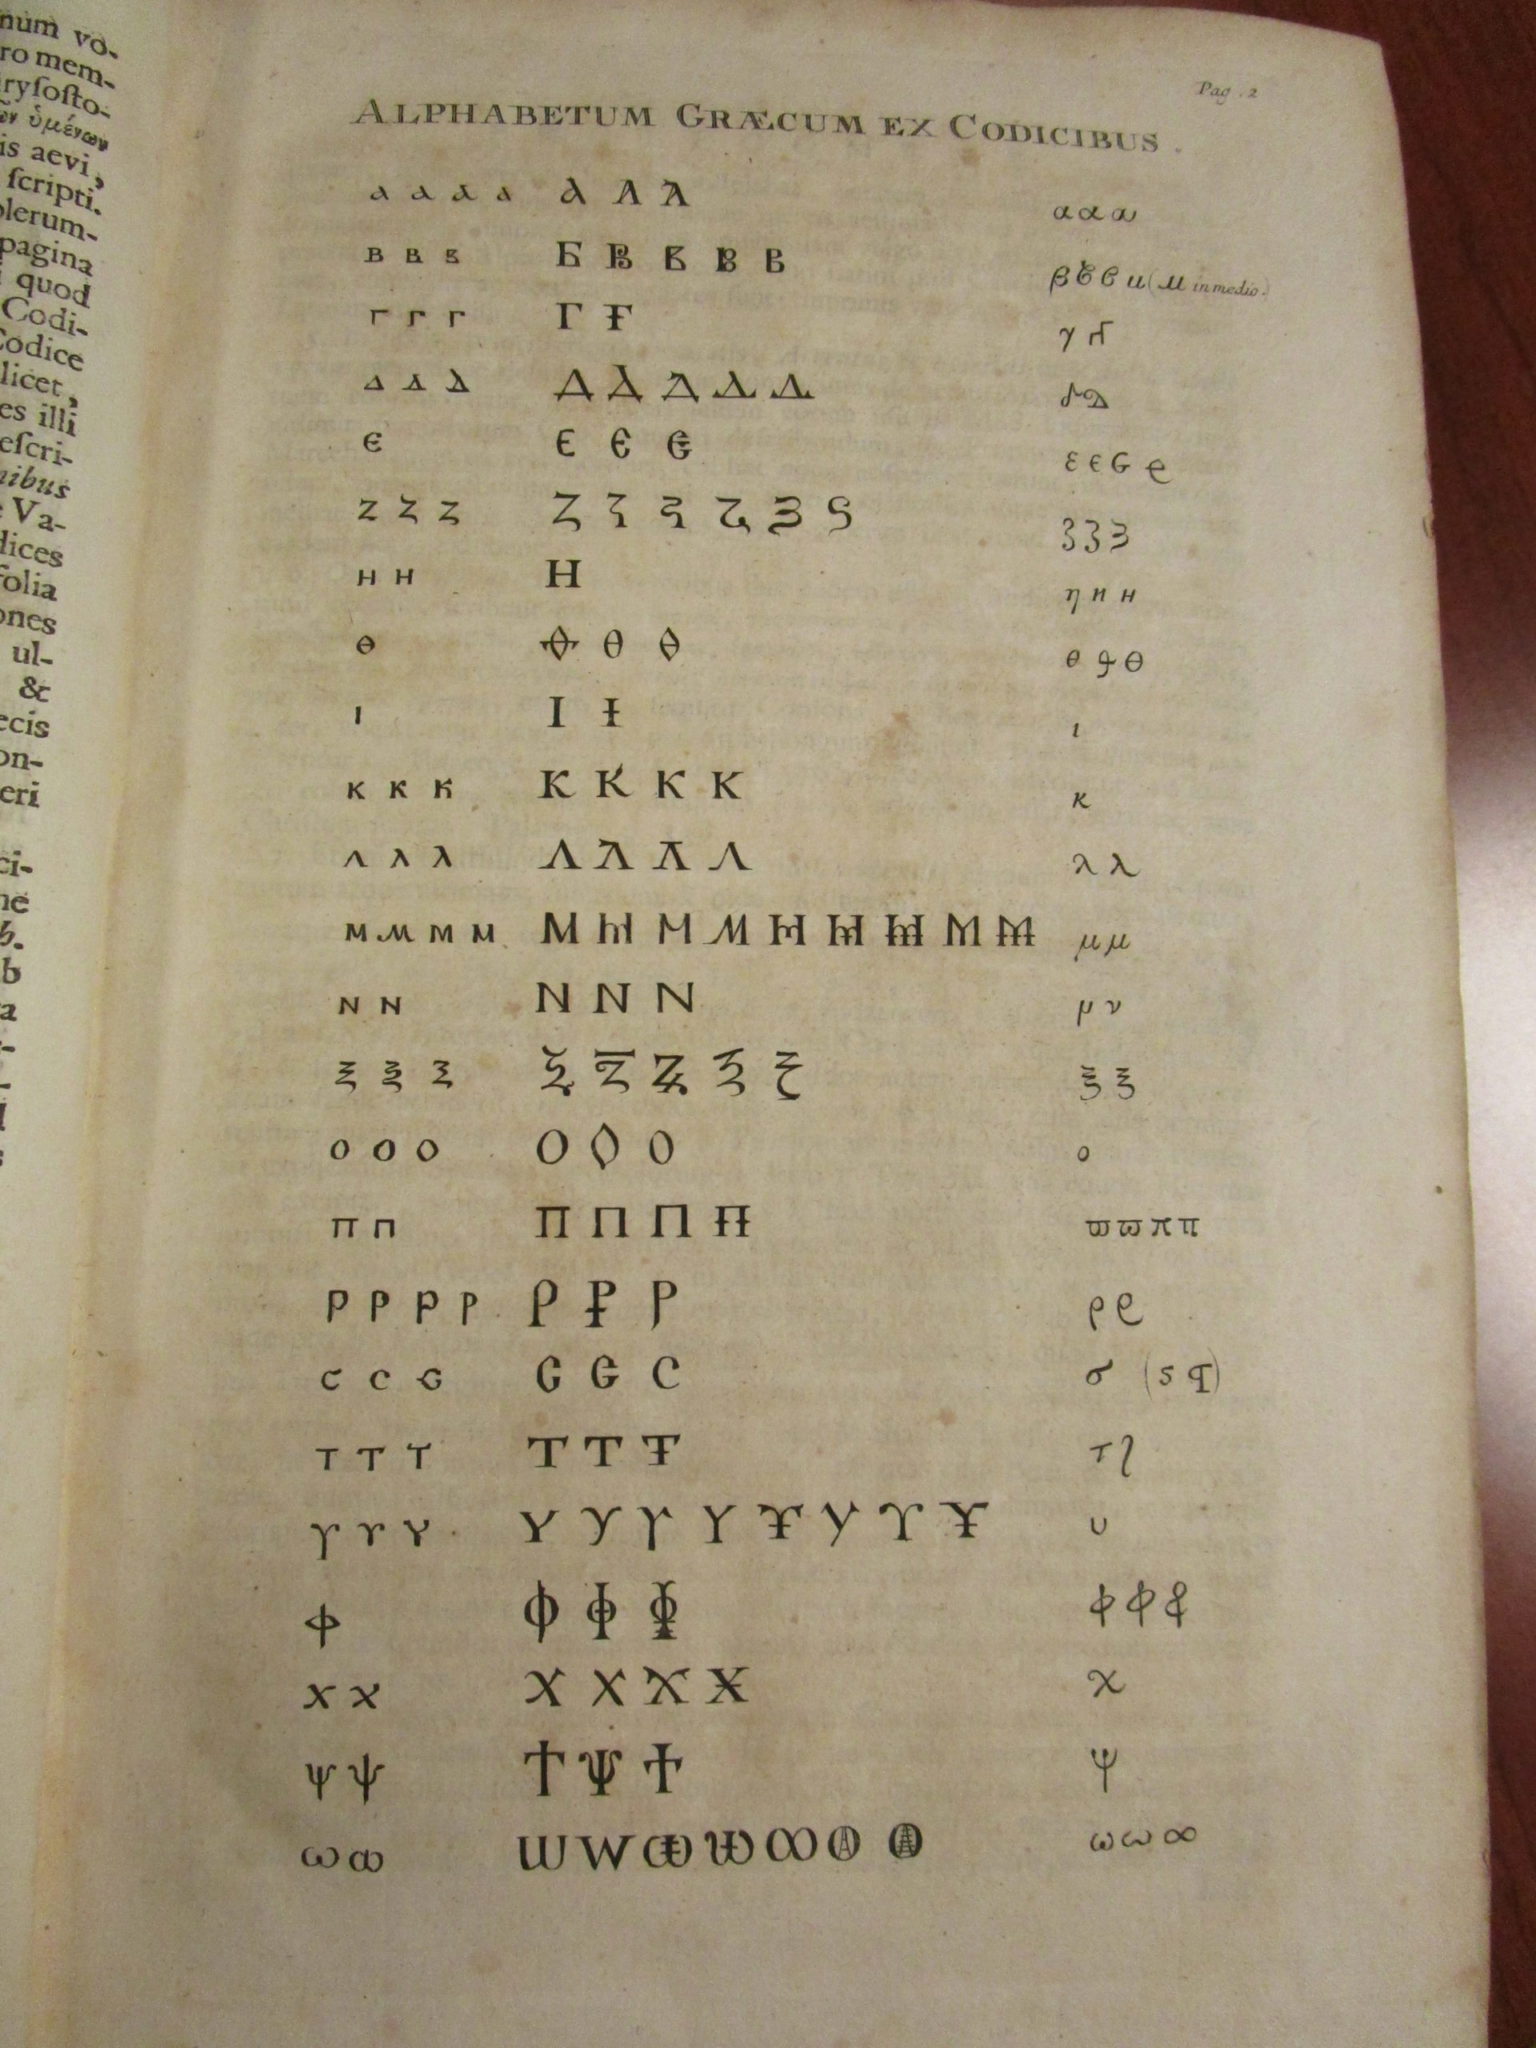 num vo-
ro mem-
ryſoſto-
ὑμένων
is aevi,
ſcripti.
plerum-
pagina
quod
Codi-
Codice
licet,
es illi
eſcri-
nibus
Va-
dices
folia
ones
ul-
&
ecis
on-
eri
ci-
ne
Pag. 2
ALPHABETUM GRÆCUM EX CODICIBUS.
α α α α Α Λ Α α α α
в в в Б В Б В В β β β u (u in medio.)
г г г Γ Γ γ γ
Δ Δ Δ Δ Δ Δ Δ Δ δ δ
є Є Є Є ε ε ϵ e
z z z Ζ ζ ζ ζ ζ ζ ʒ ʒ ʒ
н н Η η н н
θ Θ θ θ θ θ θ
ι Ι Ι ι
κ κ κ Κ Κ Κ Κ κ
λ λ λ Λ Λ Λ Λ λ λ
м м м м Μ Μ Μ Μ Μ Μ Μ Μ Μ μ μ
ɴ ɴ Ν Ν Ν μ ν
ξ ξ ξ ξ ξ ξ ξ ξ ξ ξ
ο ο ο Ο Ο Ο ο
π π Π Π Π Π ϖ ϖ π π
ρ ρ ρ ρ Ρ Ρ Ρ ρ ϱ
c c c Ϲ Ϲ C σ (s ϥ)
τ τ τ Τ Τ Τ τ ʅ
γ ϒ Υ Υ Υ ϒ Υ Υ У ϒ Υ υ
φ Φ Φ Φ φ φ φ
χ χ Χ Χ Χ Χ χ
ψ ψ † Ψ † ψ
ω ω Ш W ω ω ꝏ Ω Ω ω ω ∞